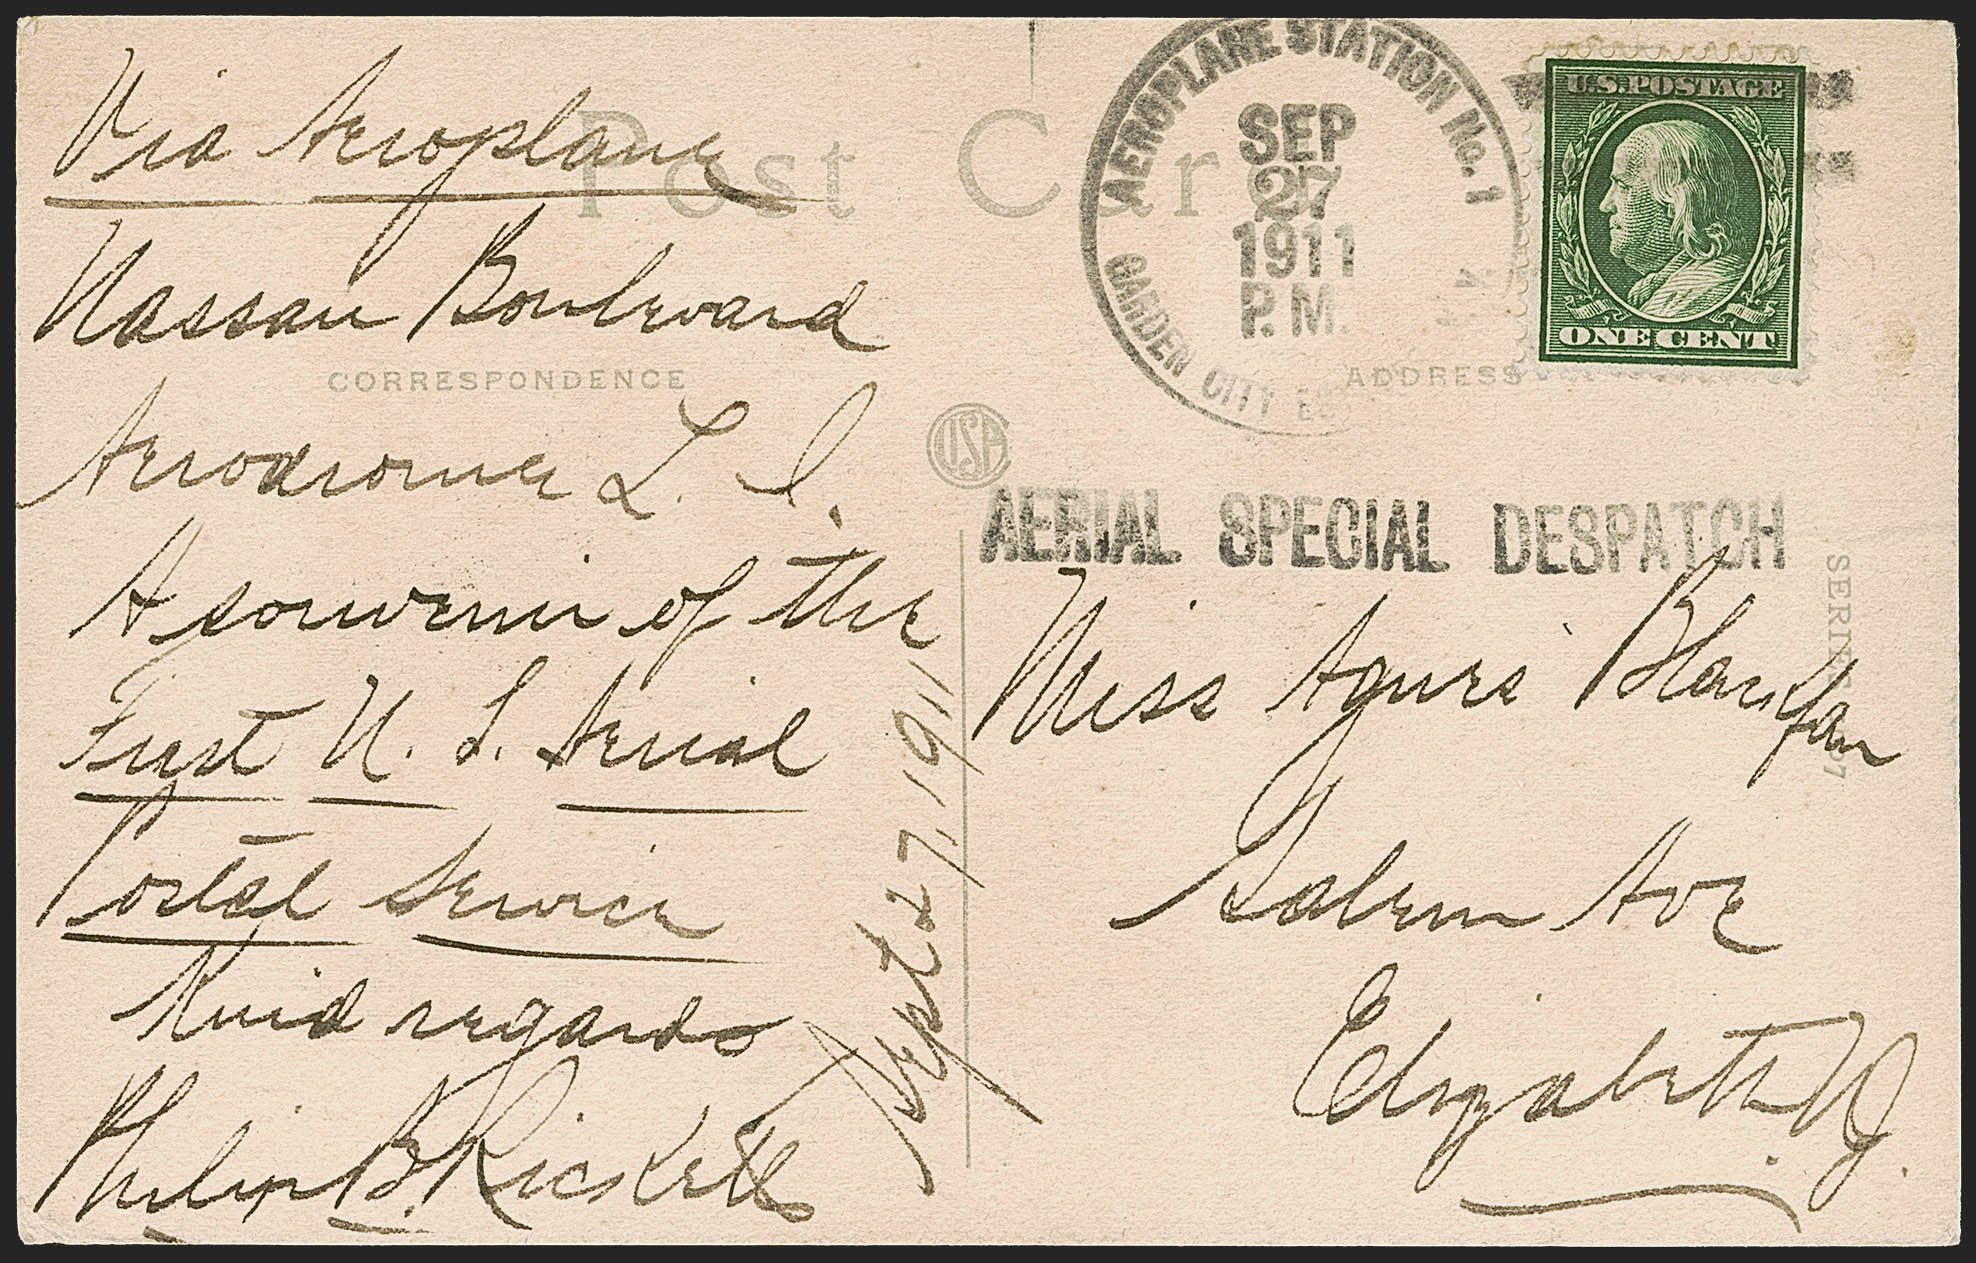 Via Aeroplane
Post Car
Nassau Boulevard
CORRESPONDENCE
Aerodrome L. I.
A souvenir of the
First U. S. Aerial
Postal Service
Kind regards
Philip B. Ricketts
Sept 27, 1911
AEROPLANE STATION No. 1
SEP
27
1911
P.M.
GARDEN CITY
U.S. POSTAGE
ONE CENT
ADDRESS
AERIAL SPECIAL DESPATCH
Miss Agnes
Salem Ave
Elizabeth N.J.